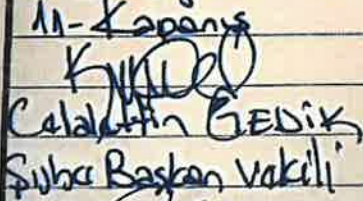 11-Kapanış
Celalettin GEDİK
Şube Başkan Vekili